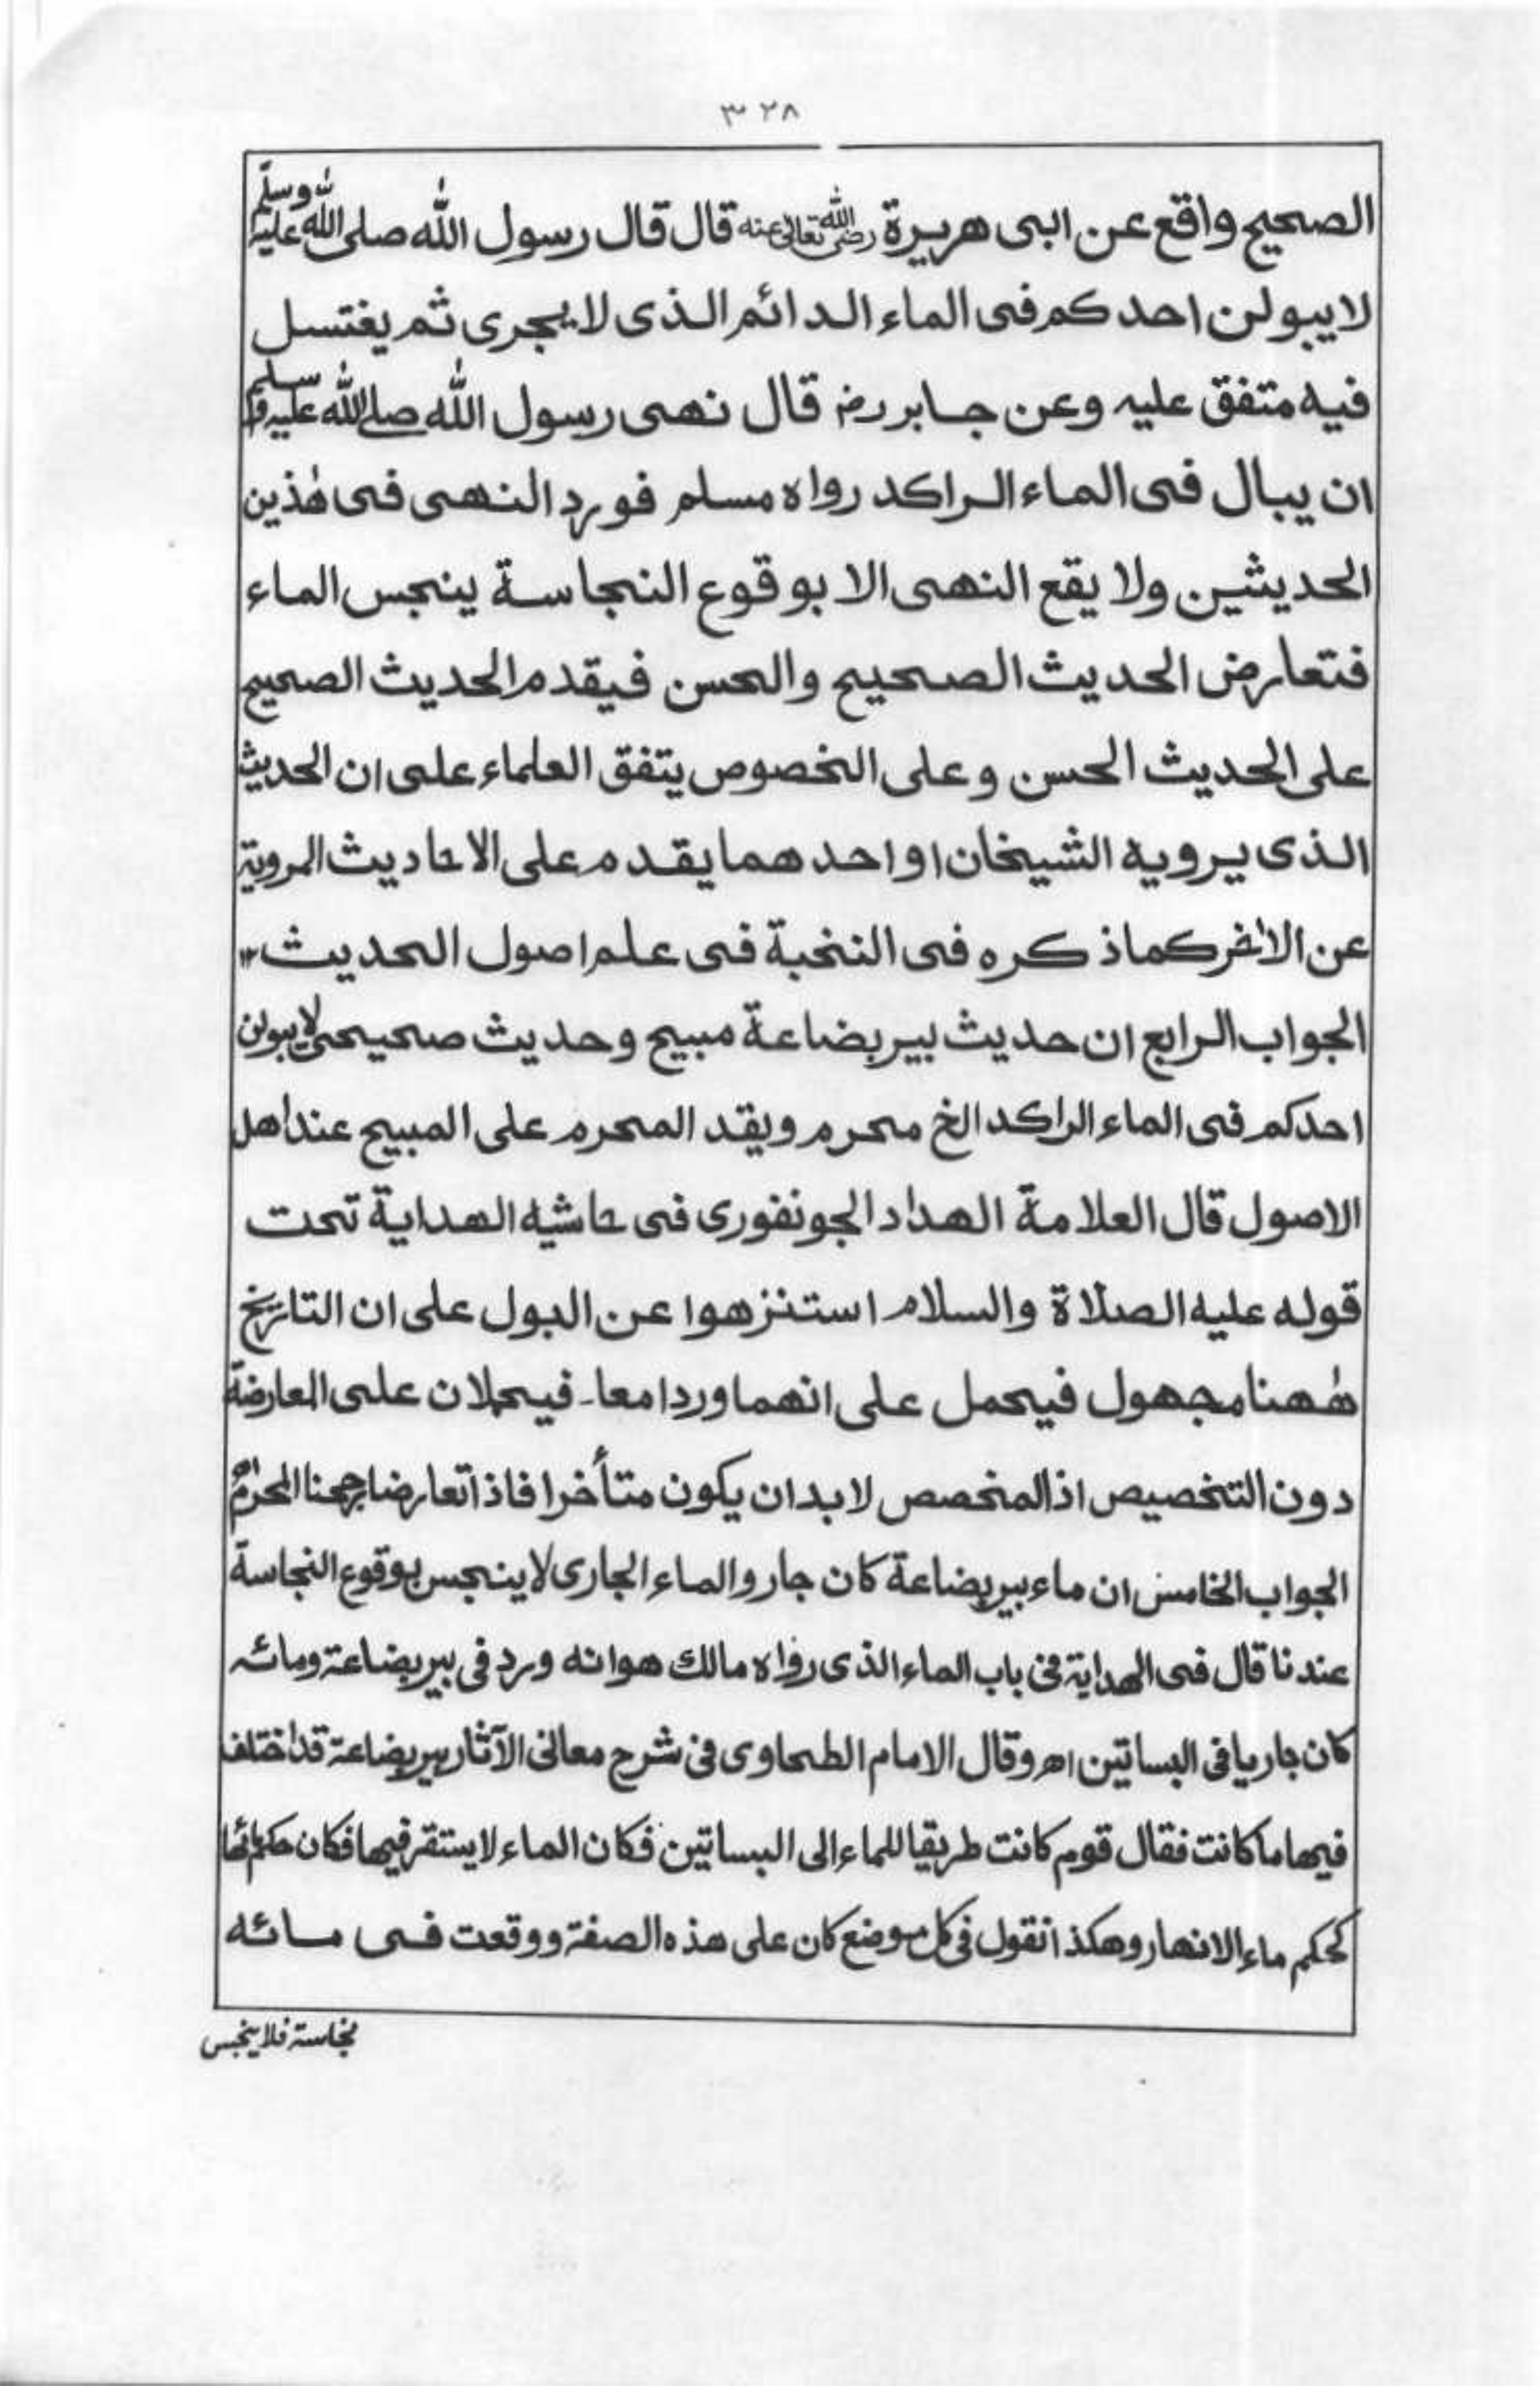 ٣٢٨
الصحيح واقع عن ابى هريرة رضى الله تعالى عنه قال قال رسول الله صلى الله عليه وسلم
لا يبولن احدكم فى الماء الدائم الذى لا يجرى ثم يغتسل
فيه متفق عليه وعن جابر رض قال نهى رسول الله صلى الله عليه وسلم
ان يبال فى الماء الراكد رواه مسلم فورد النهى فى هٰذين
الحديثين ولا يقع النهى الا بوقوع النجاسة ينجس الماء
فتعارض الحديث الصحيح والحسن فيقدم الحديث الصحيح
على الحديث الحسن وعلى الخصوص يتفق العلماء على ان الحديث
الذى يرويه الشيخان او احدهما يقدم على الاحاديث المروية
عن الاٰخر كما ذكره فى النخبة فى علم اصول الحديث ١٢
الجواب الرابع ان حديث بير بضاعة مبيح وحديث صحيحى لا يبولن
احدكم فى الماء الراكد الخ محرم ويقد المحرم على المبيح عند اهل
الاصول قال العلامة الهداد الجونفورى فى حاشيه الهداية تحت
قوله عليه الصلاة والسلام استنزهوا عن البول على ان التاريخ
هٰهنا مجهول فيحمل على انهما وردا معا۔ فيحملان على المعارضة
دون التخصيص اذ المخصص لا بد ان يكون متأخرا فاذا تعارضا رجحنا المحرم اه
الجواب الخامس ان ماء بير بضاعة كان جار والماء الجارى لا ينجس بوقوع النجاسة
عندنا قال فى الهداية فى باب الماء الذى رواه مالك هو انه ورد فى بير بضاعة ومائه
كان جاريا فى البساتين اه وقال الامام الطحاوى فى شرح معانى الآثار بير بضاعة قد اختلف
فيها ما كانت فقال قوم كانت طريقا للماء الى البساتين فكان الماء لا يستقر فيها فكان حكم مائها
كحكم ماء الانهار وهكذا نقول فى كل موضع كان على هذه الصفة ووقعت فى مائه
نجاسة فلا ينجس